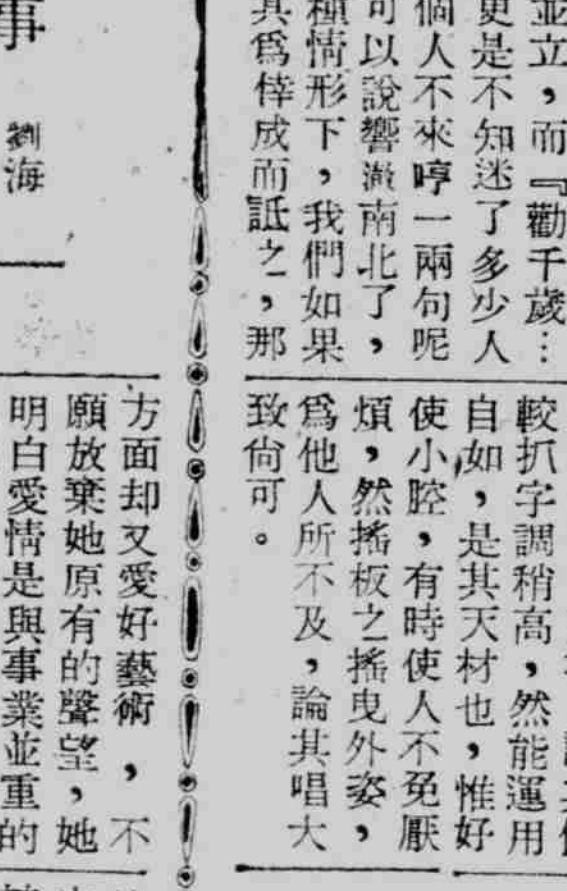 並立，而『勸千歲…
更是不知迷了多少人
個人不來哼一兩句呢
可以說響澈南北了，
種情形下，我們如果
其爲倖成而詆之，那
較扒字調稍高，然能運用
自如，是其天材也，惟好
使小腔，有時使人不免厭
煩，然搖板之搖曳外姿，
爲他人所不及，論其唱大
致尙可。
事
劉海
方面却又愛好藝術，不
願放棄她原有的聲望，她
明白愛情是與事業並重的